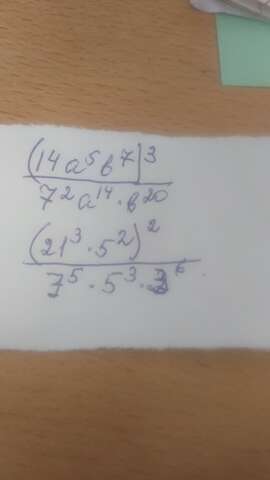 (14a⁵b⁷)³
7²a¹⁴·b²⁰
(21³·5²)²
7⁵·5³·3⁶